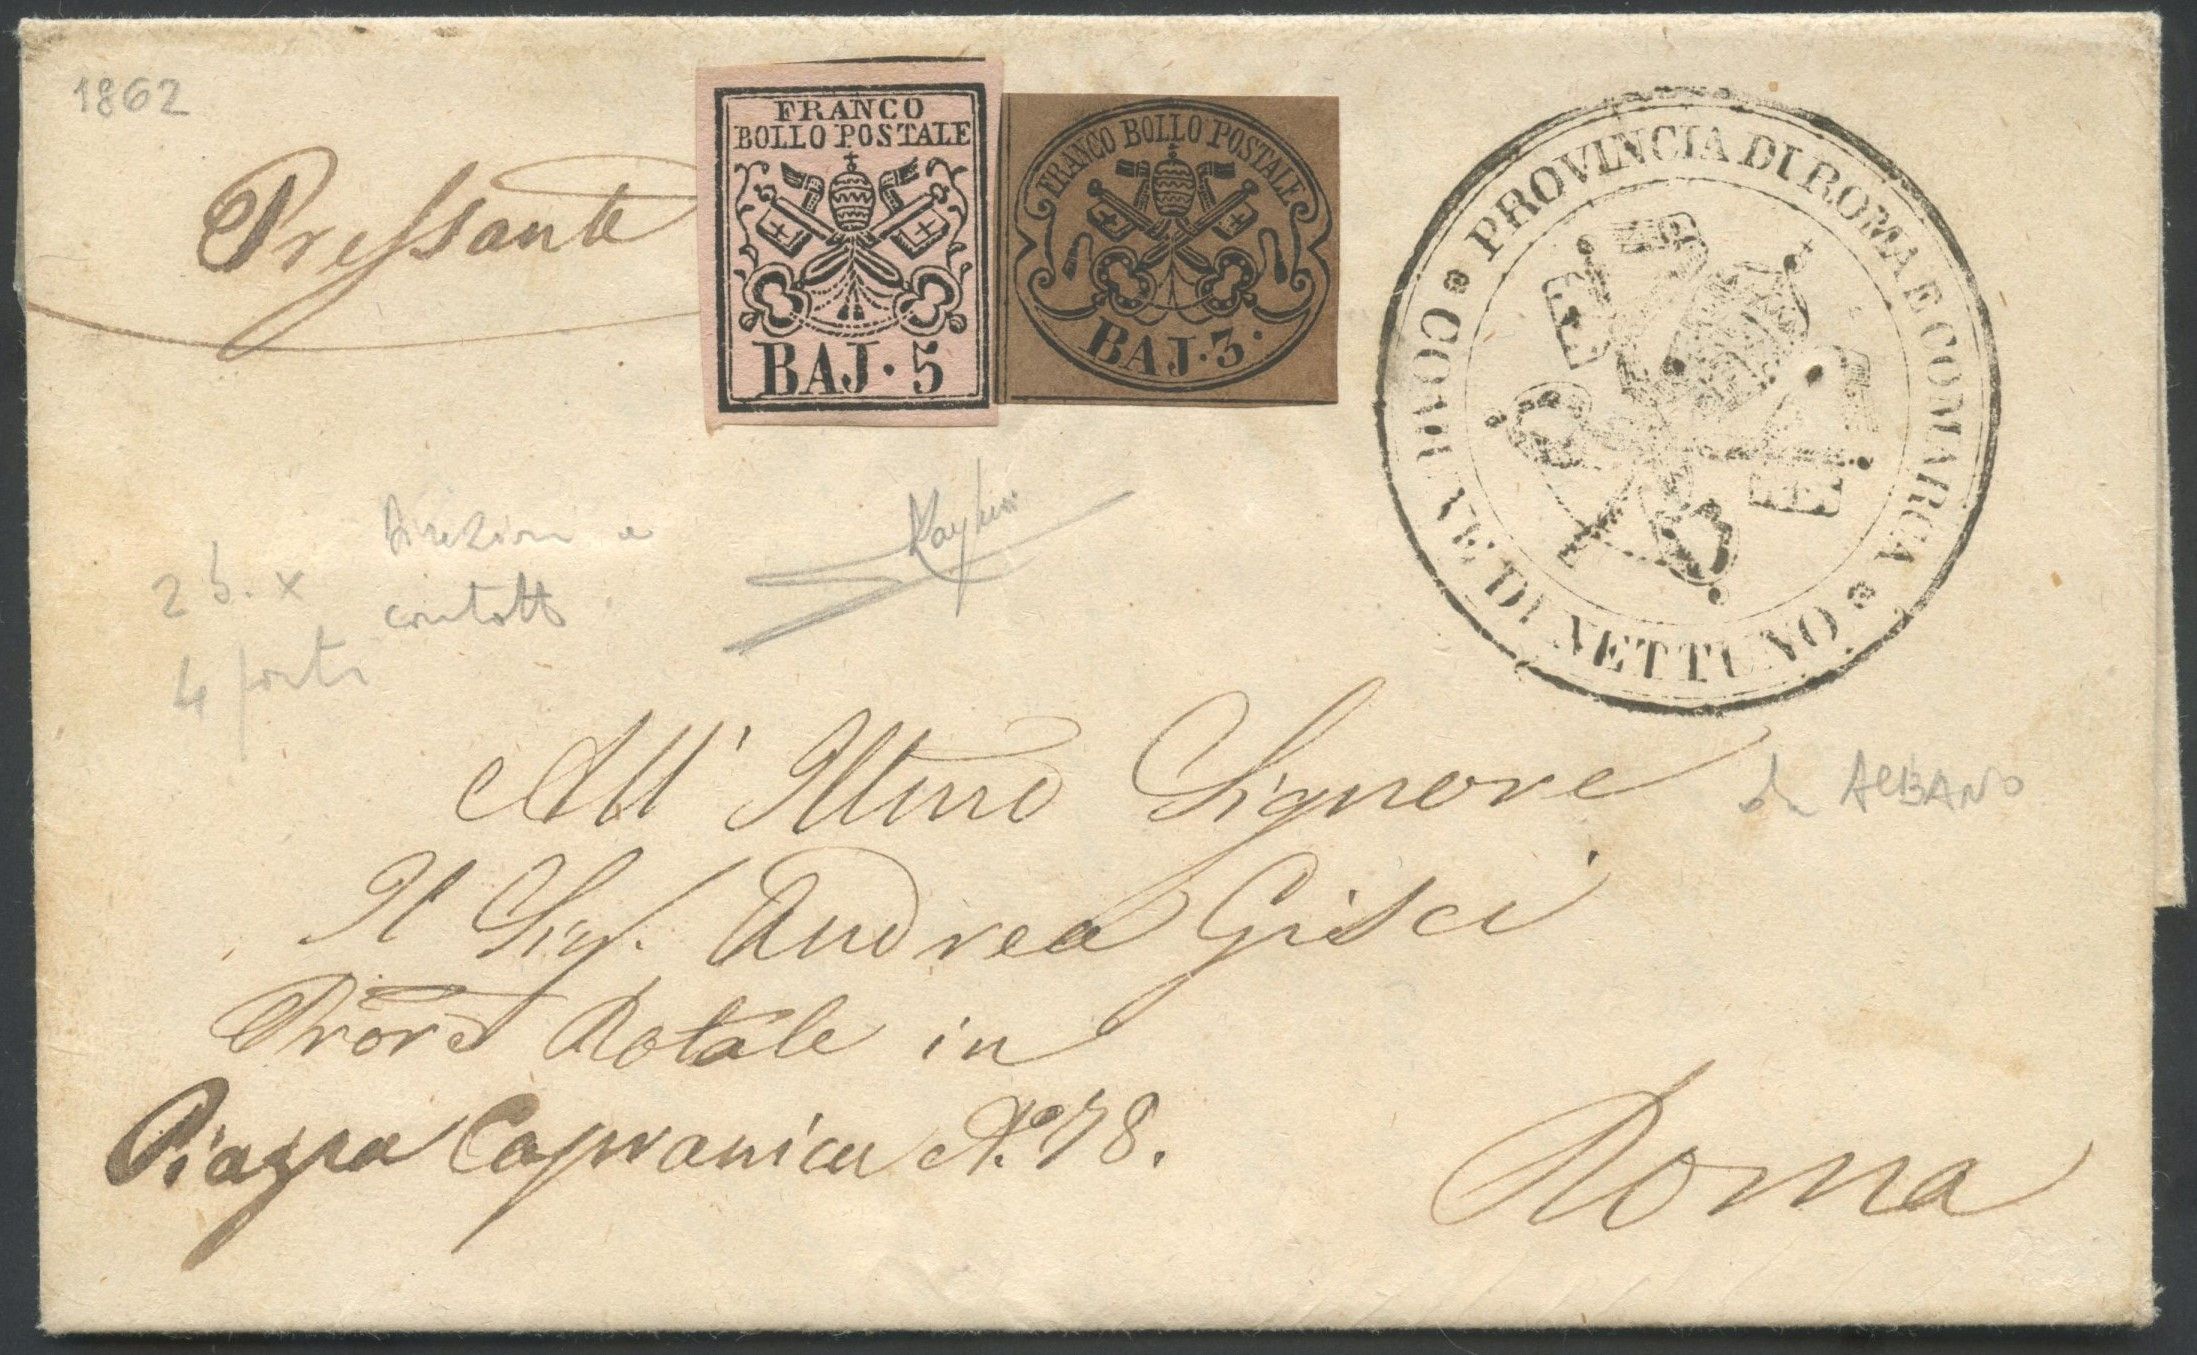 1862
Pressante
FRANCO
BOLLO POSTALE
BAJ · 5
FRANCO BOLLO POSTALE
BAJ · 3 ·
PROVINCIA DI ROMA E COMARCA
COMUNE DI NETTUNO
Direzioni a
contatto
2 b. x
4 porti
All' Illmo Signore
da ALBANO
Il Sig. Andrea Gisci
Rotale in
Piazza Capranica N.° 78.
Roma